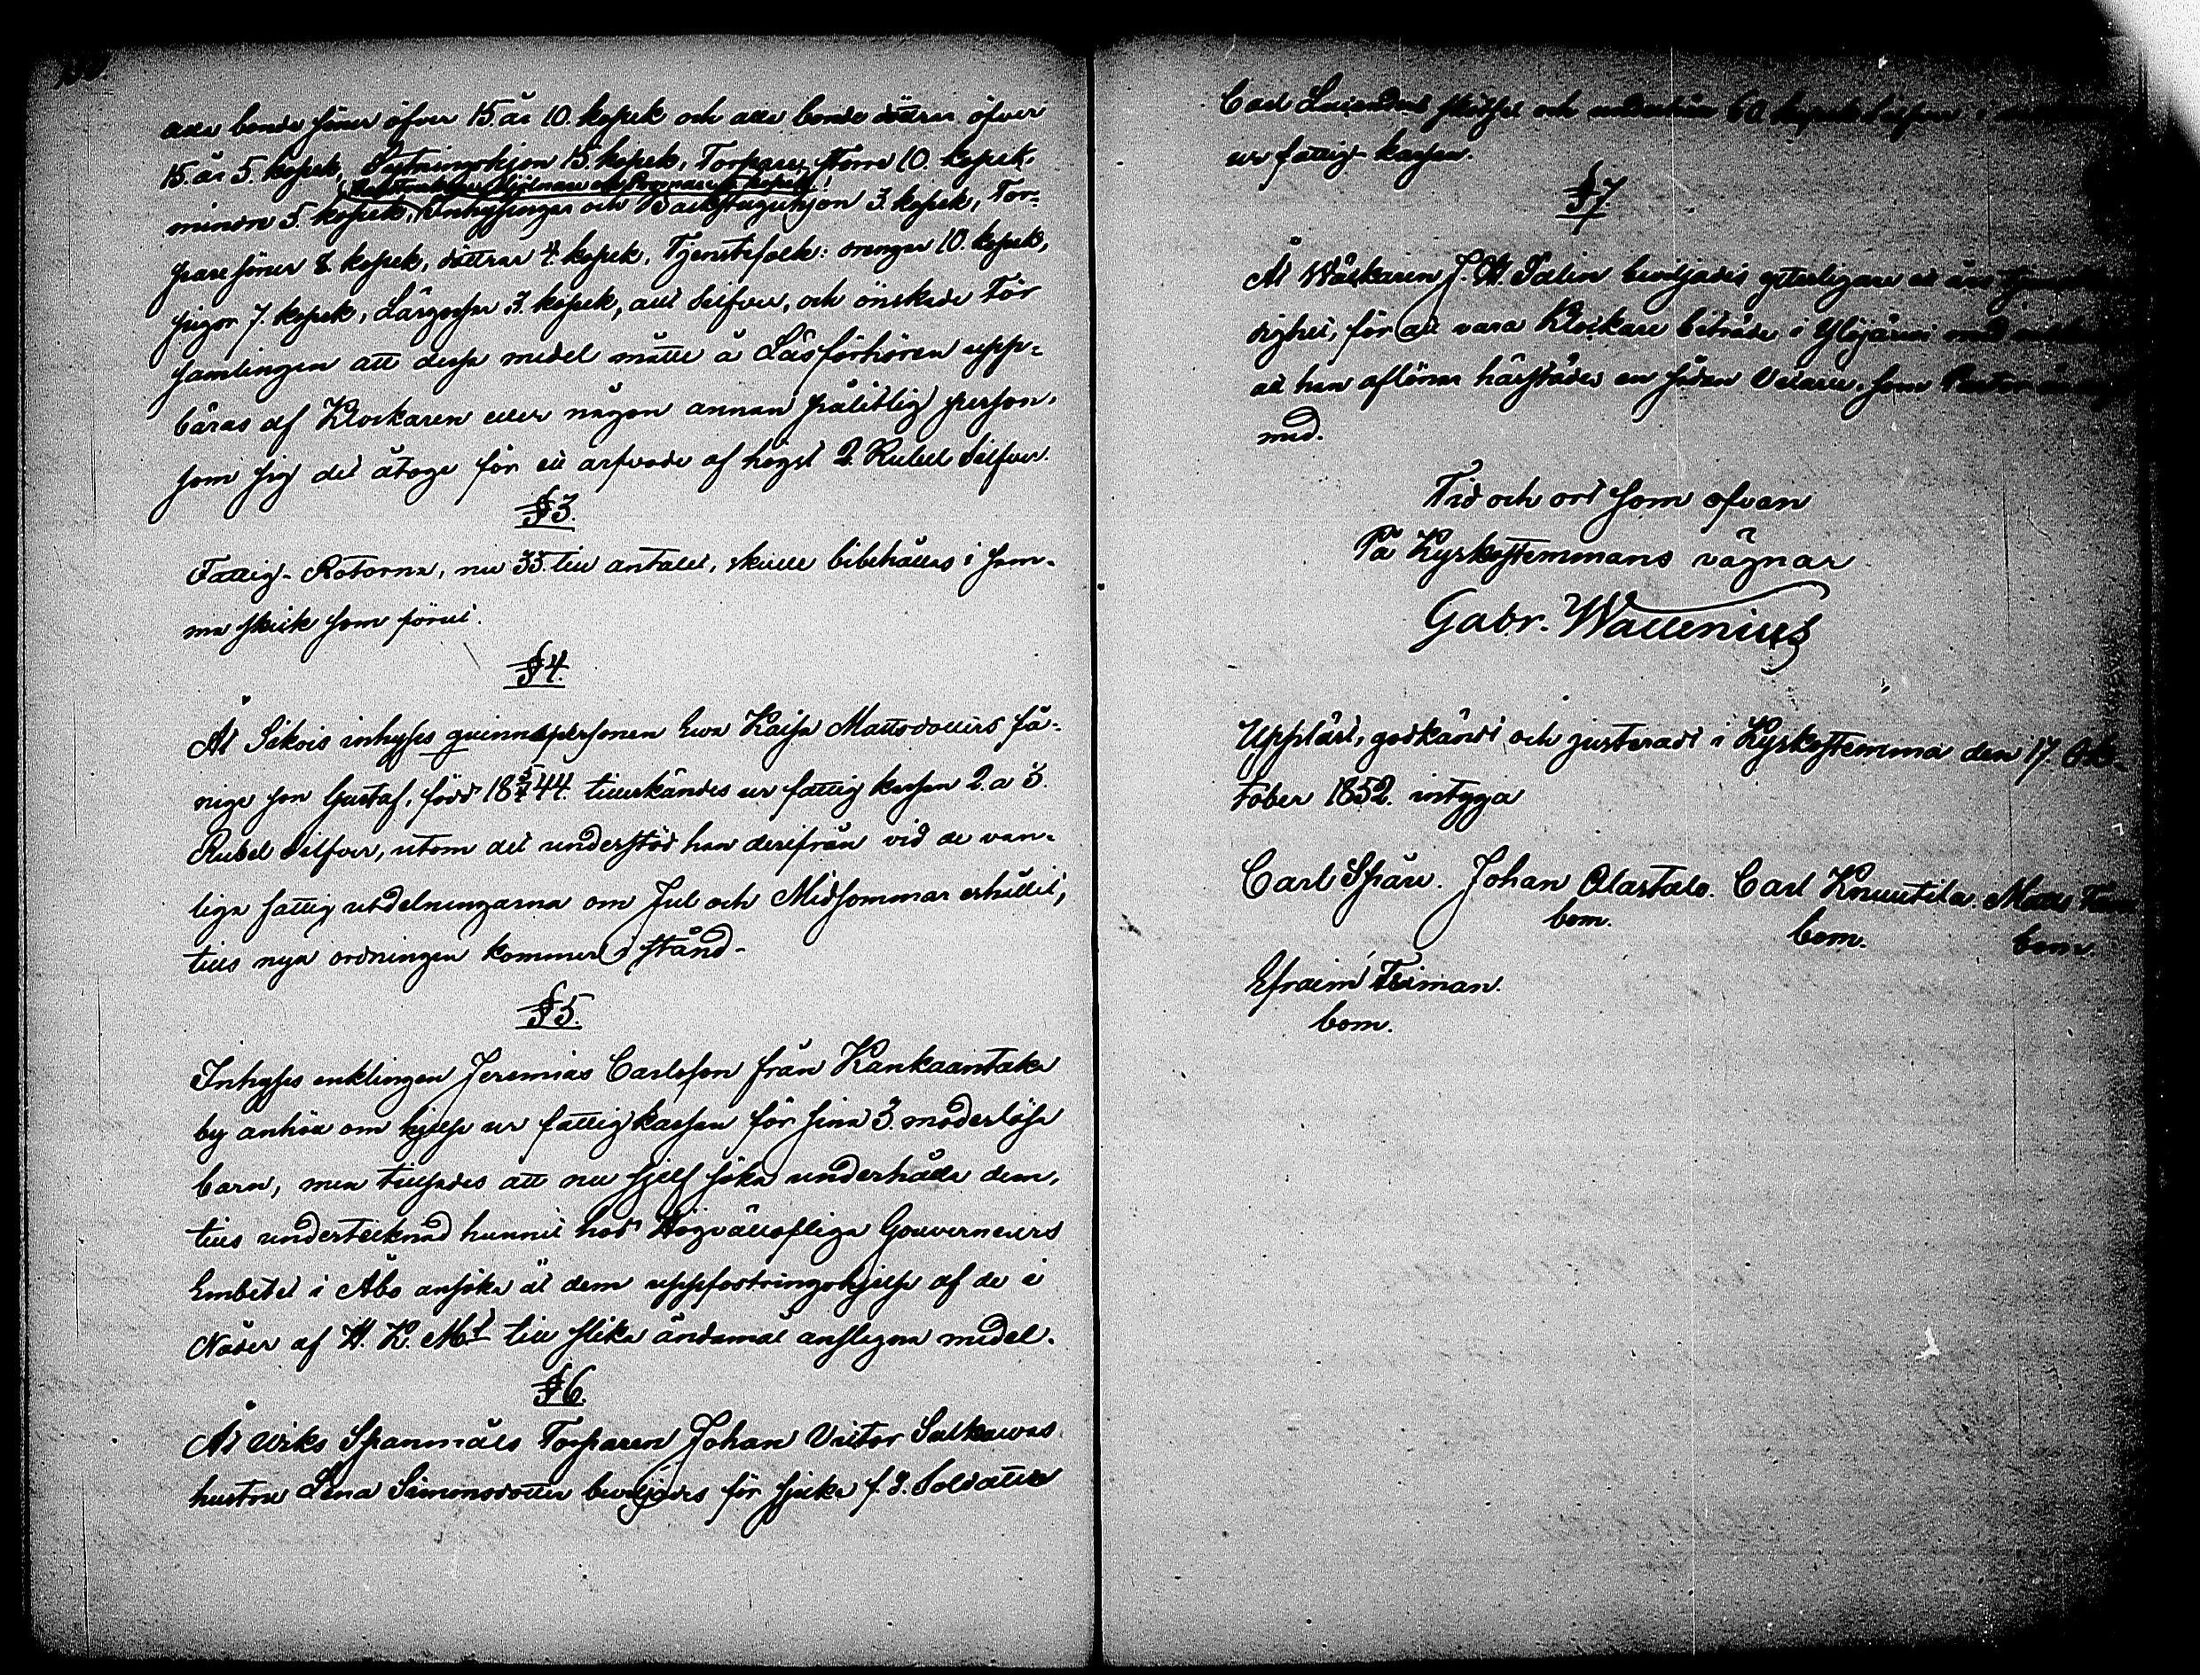 alla bonde söner öfver 15. år 10. kopek och alla bonde döttrar öfver
15. år 5. kopek, Sytningshjon 15. kopek, Torpare, större 10. kopek,
mindre 5. kopek, Inhysingar och Backstuguhjon 3. kopek, Tor-
pare söner 8. kopek, döttrar 4. kopek, Tjenstefolk: drengar 10. kopek,
pigor 7. kopek, 3. kopek, allt Silfver, och önskade För
samlingen att dessa medel måtte å Läsförhören upp-
bäras af Klockaren eller någon annan pålitlig person,
som sig det åtoge för ett arfvode af högst 2. Rubel Silfver.
§3.
Fattig-Rotorna, nu 33. till antalet, skulle bibehållas i sam-
ma skick som förut.
§4.
Åt Sikois inhyses qvinnspersonen Ewa Kaisa Mattsdotters få-
nige son Gustaf, född 18 5/4 44. tillerkändes ur fattig kassan 2. a 3.
Rubel Silfver, utom det understöd han derifrån vid de van-
liga fattig utdelningarna om Jul och Midsommar erhållit,
tills nya ordningen kommer i stånd.
§5.
Inhyses enklingen Jeremias Carlsson från Kankaantaka
by anhöll om hjelp ur fattigkassan för sina 3. moderlösa
barn, men tillsades att nu sjelf söka underhålla dem,
tills undertecknad hunnit hos Högvällofliga Gouverneurs
Embetet i Åbo ansöka åt dem uppfostringshjelp af de i
Nåder af H. K. Mt till slika ändamål anslagna medel.
§6.
Åt Wiks Spanmåls Torparen Johan Victor Salkawas
hustru Lena Simonsdotter beviljades för sjuka f. d. Soldaten
Carl skötsel och 60 kopek Silfver i
ur fattig-kassan.
§7
Åt Wålkaren J. W. Salin beviljades ytterligare ett års
dighet, för att vara Klockare biträde i Ylöjärvi med
att han aflönar härstädes en sådan Vikarie, som Pastor är nöjd
med.
Tid och ort som ofvan
På Kyrkostemmans vägnar
Gabr. Wallenius
Uppläst, godkändt och justeradt i Kyrkostemma den 17. Ok-
tober 1852. intyga
Carl Spåre. Johan Alastalo. Carl Knuutila. Matts
bom. bom. bom.
Efraim Teiman.
bom.